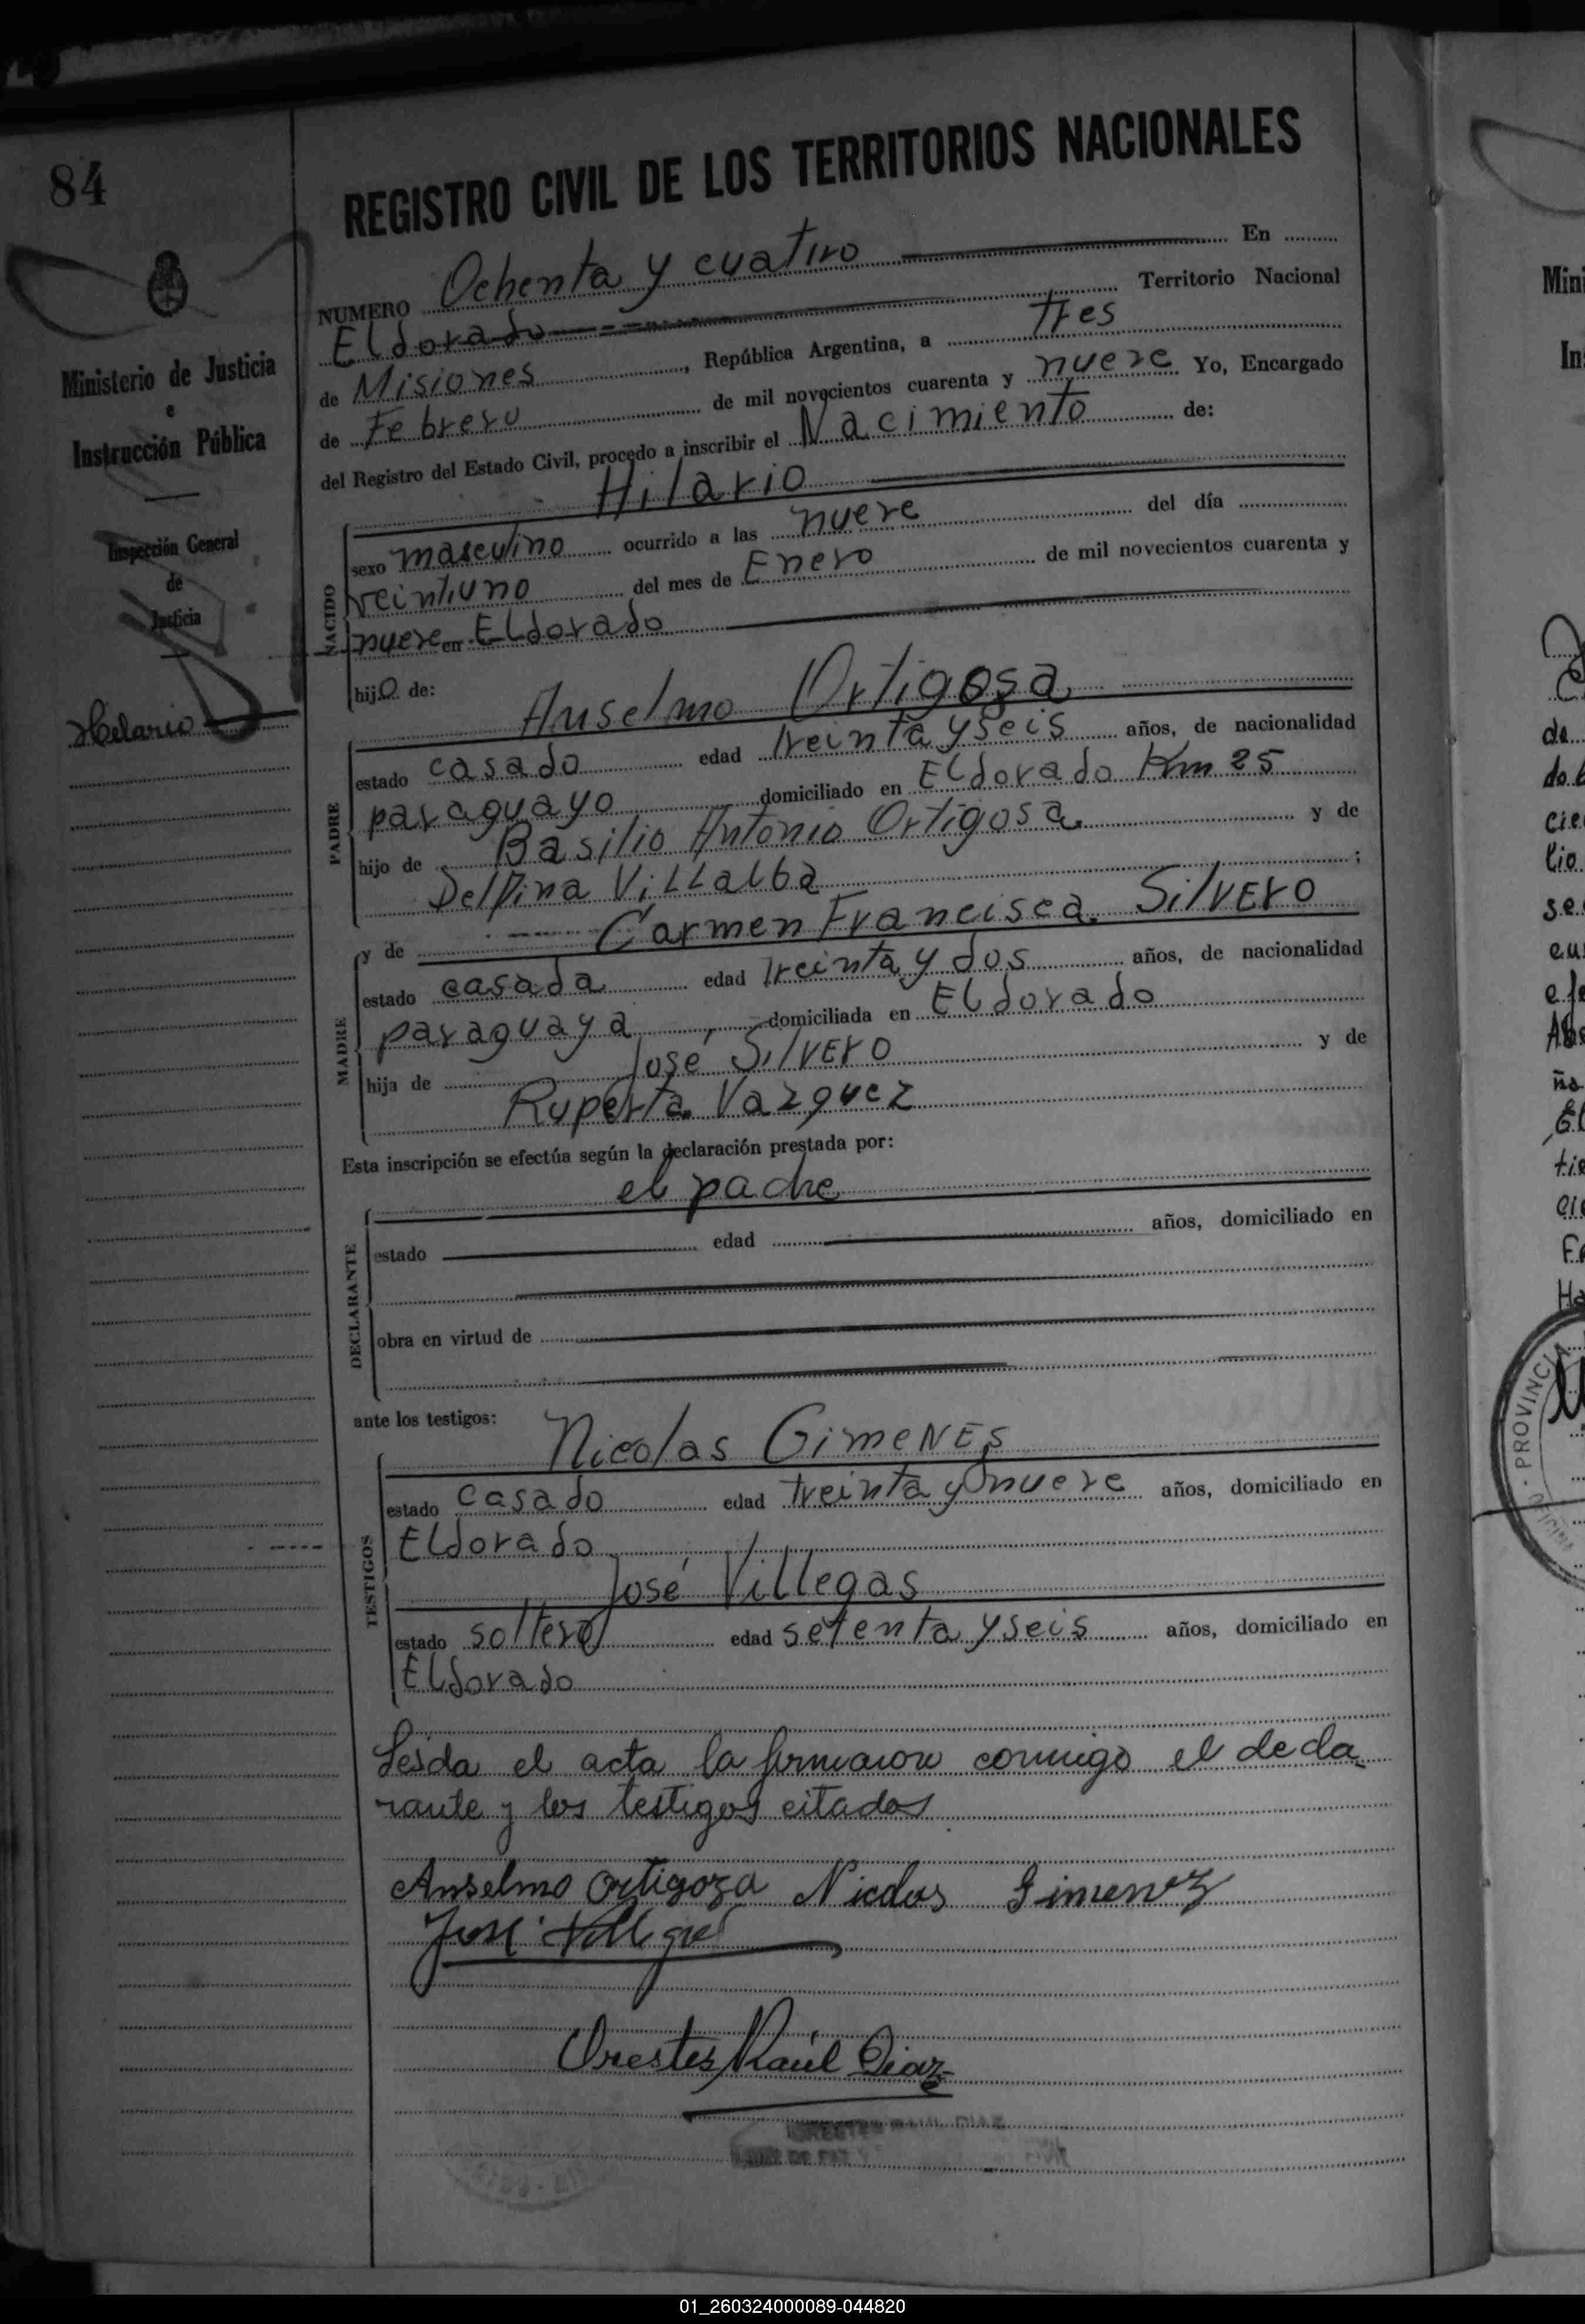 84
REGISTRO CIVIL DE LOS TERRITORIOS NACIONALES
Ministerio de Justicia
e
Instrucción Pública
Inspección General
de
Justicia
Helario
NUMERO Ochenta y cuatro En
Eldorado Territorio Nacional
de Misiones, República Argentina, a tres
de Febrero de mil novecientos cuarenta y nueve Yo, Encargado
del Registro del Estado Civil, procedo a inscribir el Nacimiento de:
Hilario
NACIDO
sexo masculino ocurrido a las nueve del día
veintiuno del mes de Enero de mil novecientos cuarenta y
nueve en Eldorado
hijo de:
Anselmo Ortigosa
PADRE
estado casado edad treinta y seis años, de nacionalidad
paraguayo domiciliado en Eldorado Km 25
hijo de Basilio Antonio Ortigosa y de
Delfina Villalba ;
y de Carmen Francisca Silvero
MADRE
estado casada edad treinta y dos años, de nacionalidad
paraguaya, domiciliada en Eldorado
hija de José Silvero y de
Ruperta Vazquez
Esta inscripción se efectúa según la declaración prestada por:
el padre
DECLARANTE
estado edad años, domiciliado en
obra en virtud de
ante los testigos:
Nicolas GimeNEs
TESTIGOS
estado casado edad treinta y nueve años, domiciliado en
Eldorado
José Villegas
estado soltero edad setenta y seis años, domiciliado en
Eldorado
Leida el acta la firmaron conmigo el decla
rante y los testigos citados
Anselmo Ortigoza Nicolas Gimenez
José Villegas
Orestes Raúl Diaz
ORESTES RAUL DIAZ
JUEZ DE PAZ
Mini
In
de
do
cie
lio
se
eu
efe
El
tie
PROVINCIA
01_260324000089-044820